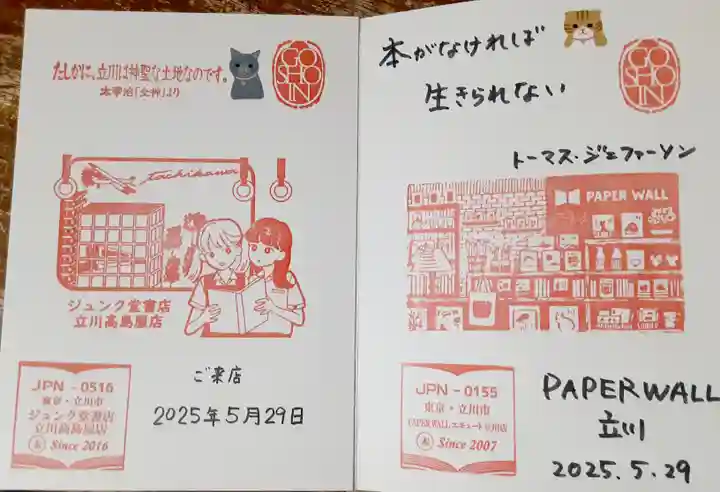 たしかに、立川は神聖な土地なのです。
太宰治「女神」より
GO
SHO
IN
tachikawa
ジュンク堂書店
立川高島屋店
JPN-0516
東京・立川市
ジュンク堂書店
立川高島屋店
Since 2016
ご来店
2025年5月29日
本がなければ
生きられない
GO
SHO
IN
トーマス・ジェファーソン
PAPER WALL
JPN-0155
東京・立川市
PAPER WALL エキュート立川店
Since 2007
PAPERWALL
立川
2025.5.29